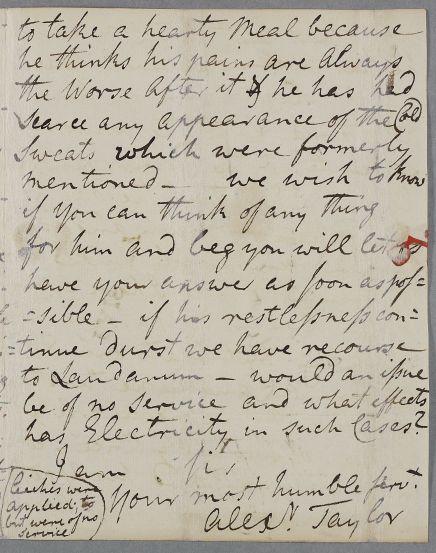 to take a hearty Meal because
he thinks his pains are always
the Worse after it & he has had
scarce any appearance of the Cold
Sweats which were formerly
mentioned — we wish to know
if you can think of any thing
for him and beg you will let us
have your answer as soon as pos=
=sible — if his restlessness con=
=tinue durst we have recourse
to Laudanum — would an issue
be of no service and what effects
has Electricity in such Cases?
I am Sir,
Your most humble servt.
Alexr. Taylor
Leiches were
applied, to
but were of no
service